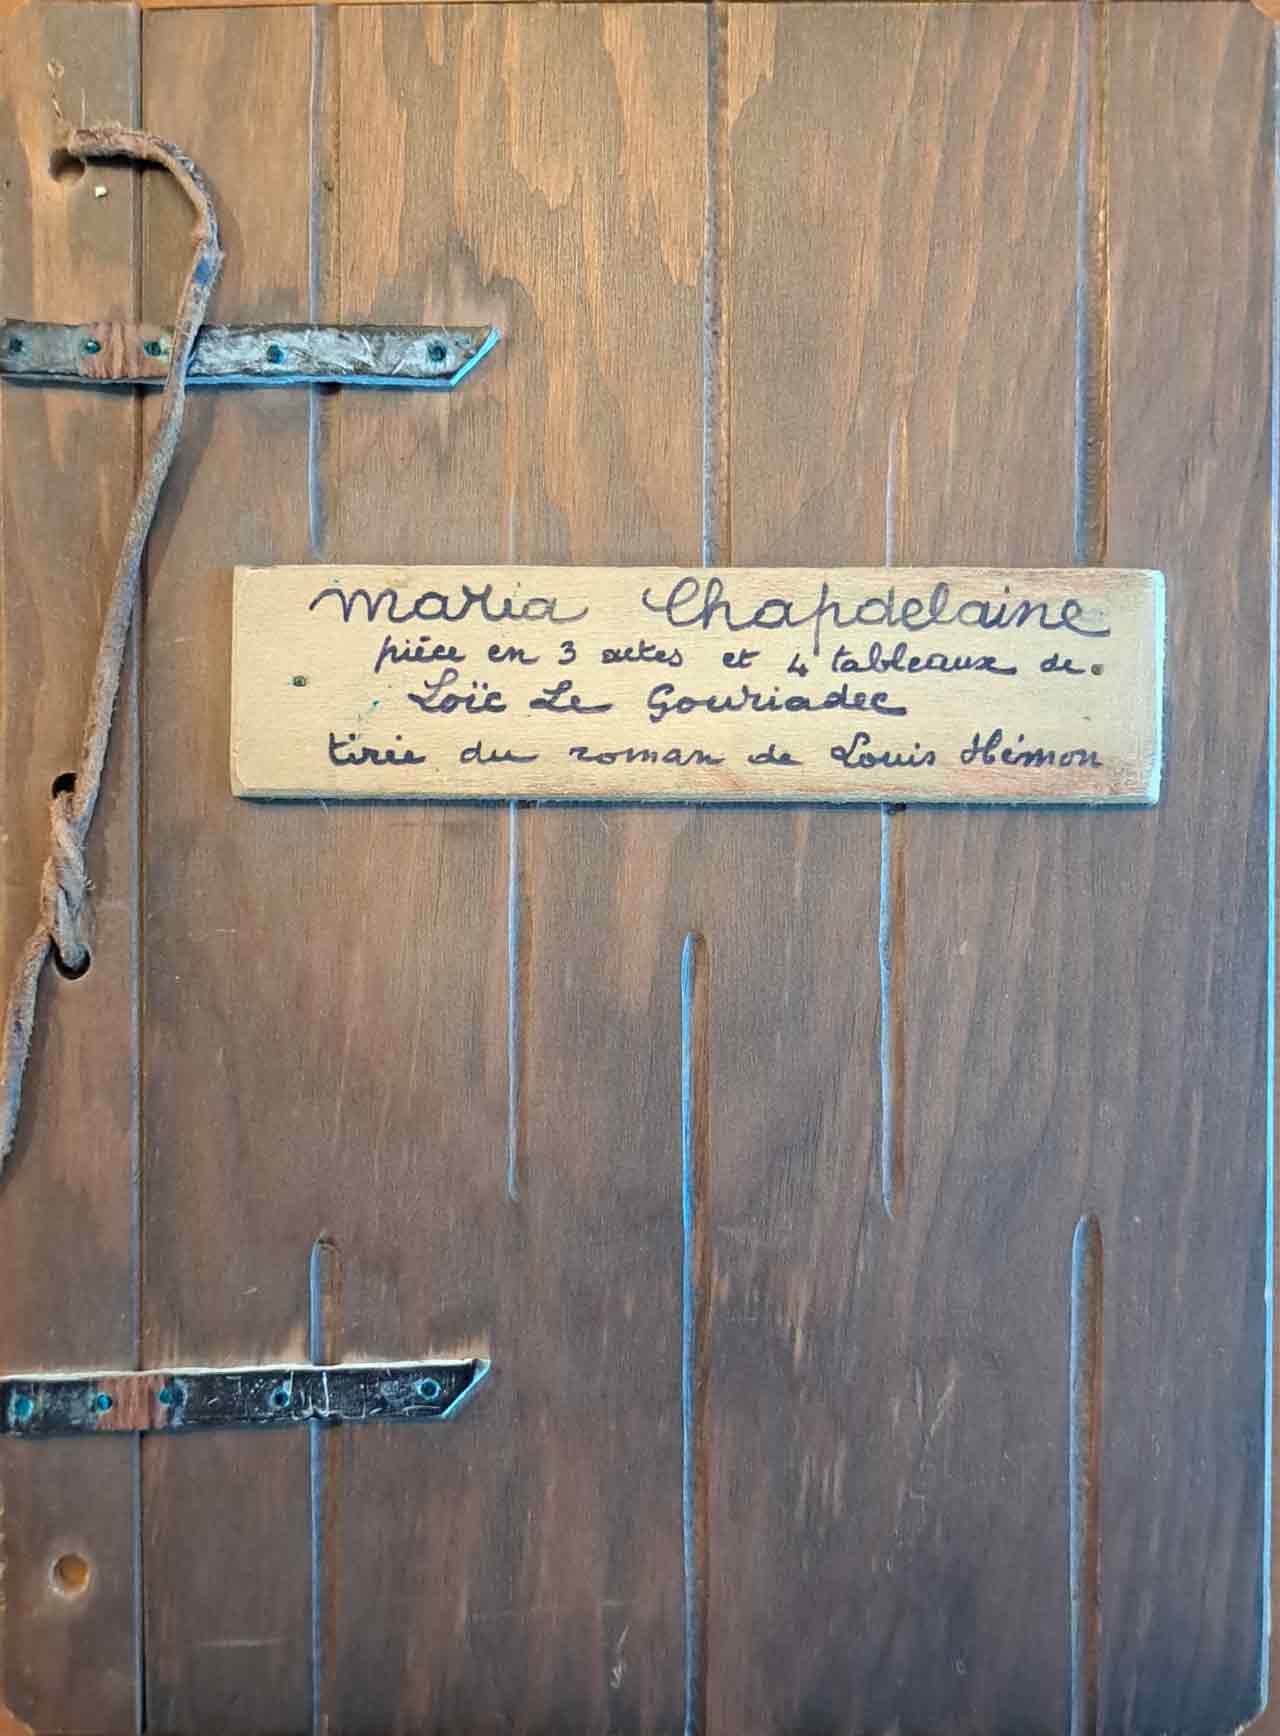 Maria Chapdelaine
pièce en 3 actes et 4 tableaux de
Loïc Le Gouriadec
tirée du roman de Louis Hémon